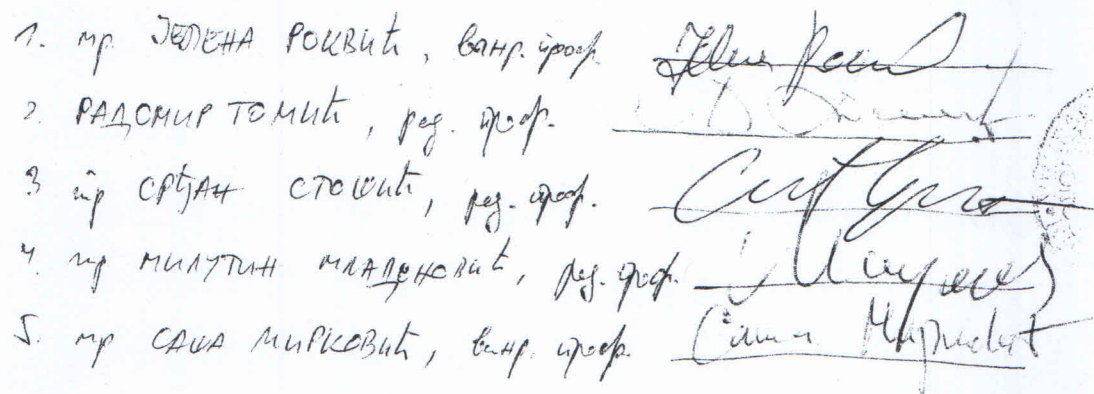 1. мр ЈЕЛЕНА РОКВИЋ, ванр. проф.
2. РАДОМИР ТОМИЋ, ред. проф.
3 др СРЂАН СТОШИЋ, ред. проф.
4. др МИЛУТИН МЛАДЕНОВИЋ, ред. проф.
5. мр САША МИРКОВИЋ, ванр. проф.